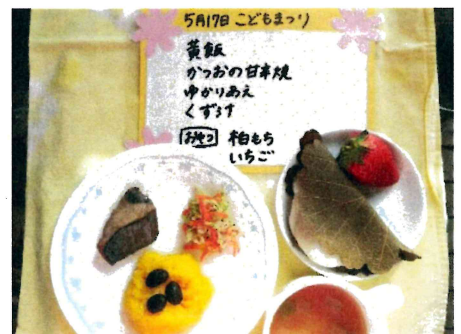 5月17日 こどもまつり
黄飯
かつおの甘辛焼
ゆかりあえ
くずうす
おやつ 柏もち
いちご